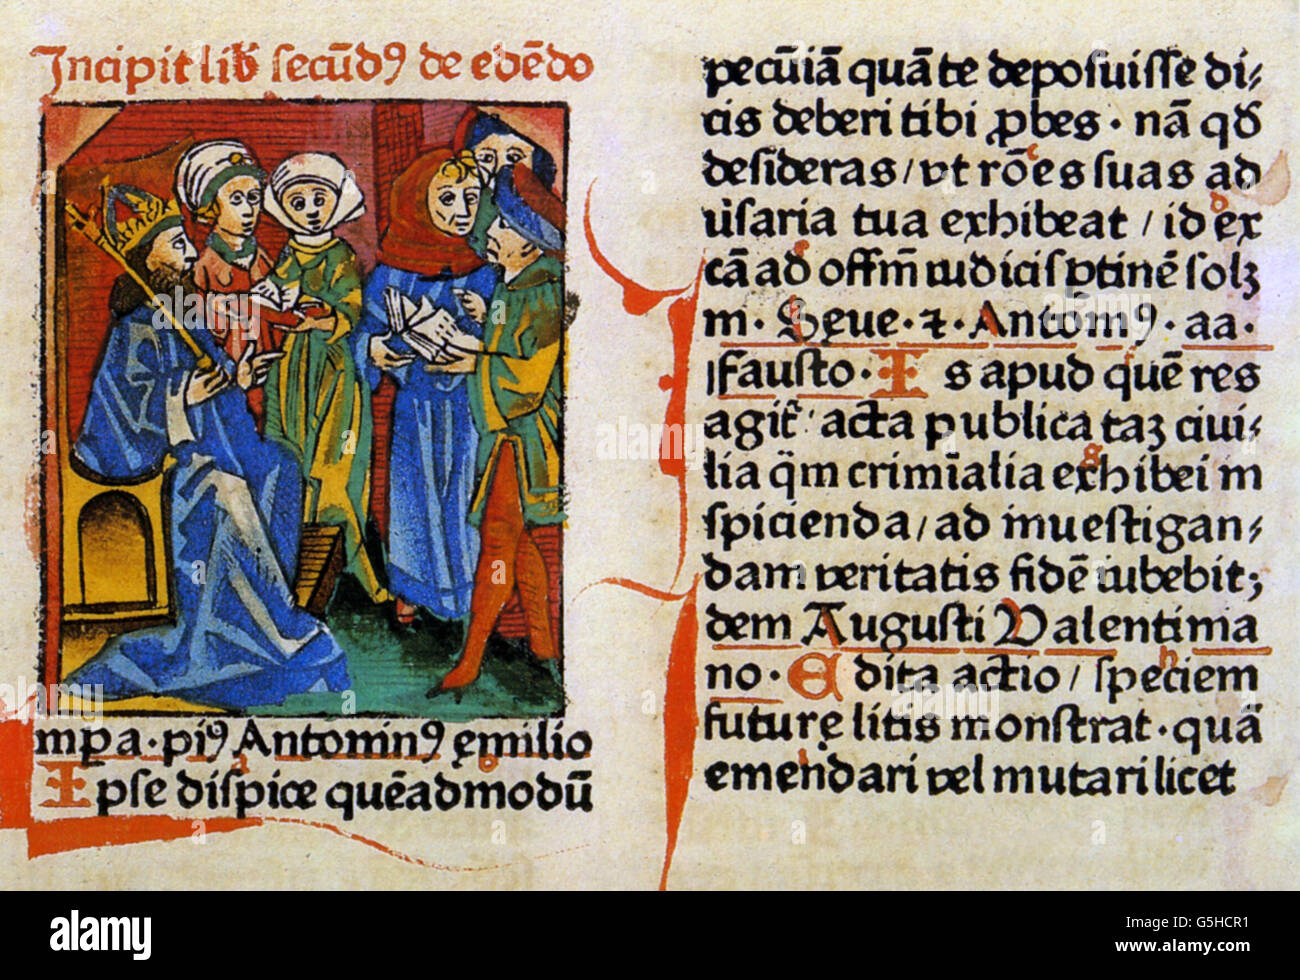 Incipit lib̄ secūdꝯ de edēdo
mpa. piꝯ Antoninꝯ emilio
Ipse dispice quēadmodū
pecūiā quā te deposuisse di⸗
cis deberi tibi ꝓbes · nā qd̄
desideras / vt rōes suas ad
ūsaria tua exhibeat / id ex
cā ad offm̄ iudicis ꝑtinē solꝫ
m · Seue · ⁊ · Antōinꝯ · aa ·
Fausto · Is apud quē res
agit᷑ acta publica taꝫ ciui⸗
lia q̄m crimīalia exhibei in
spicienda / ad inuestigan⸗
dam veritatis fidē iubebit;
dem Augusti Valentinia
no · Edita actio / speciem
future litis monstrat · quā
emendari vel mutari licet
alamy
a
a
a
a
a
alamy
Image ID: G5HCR1
www.alamy.com